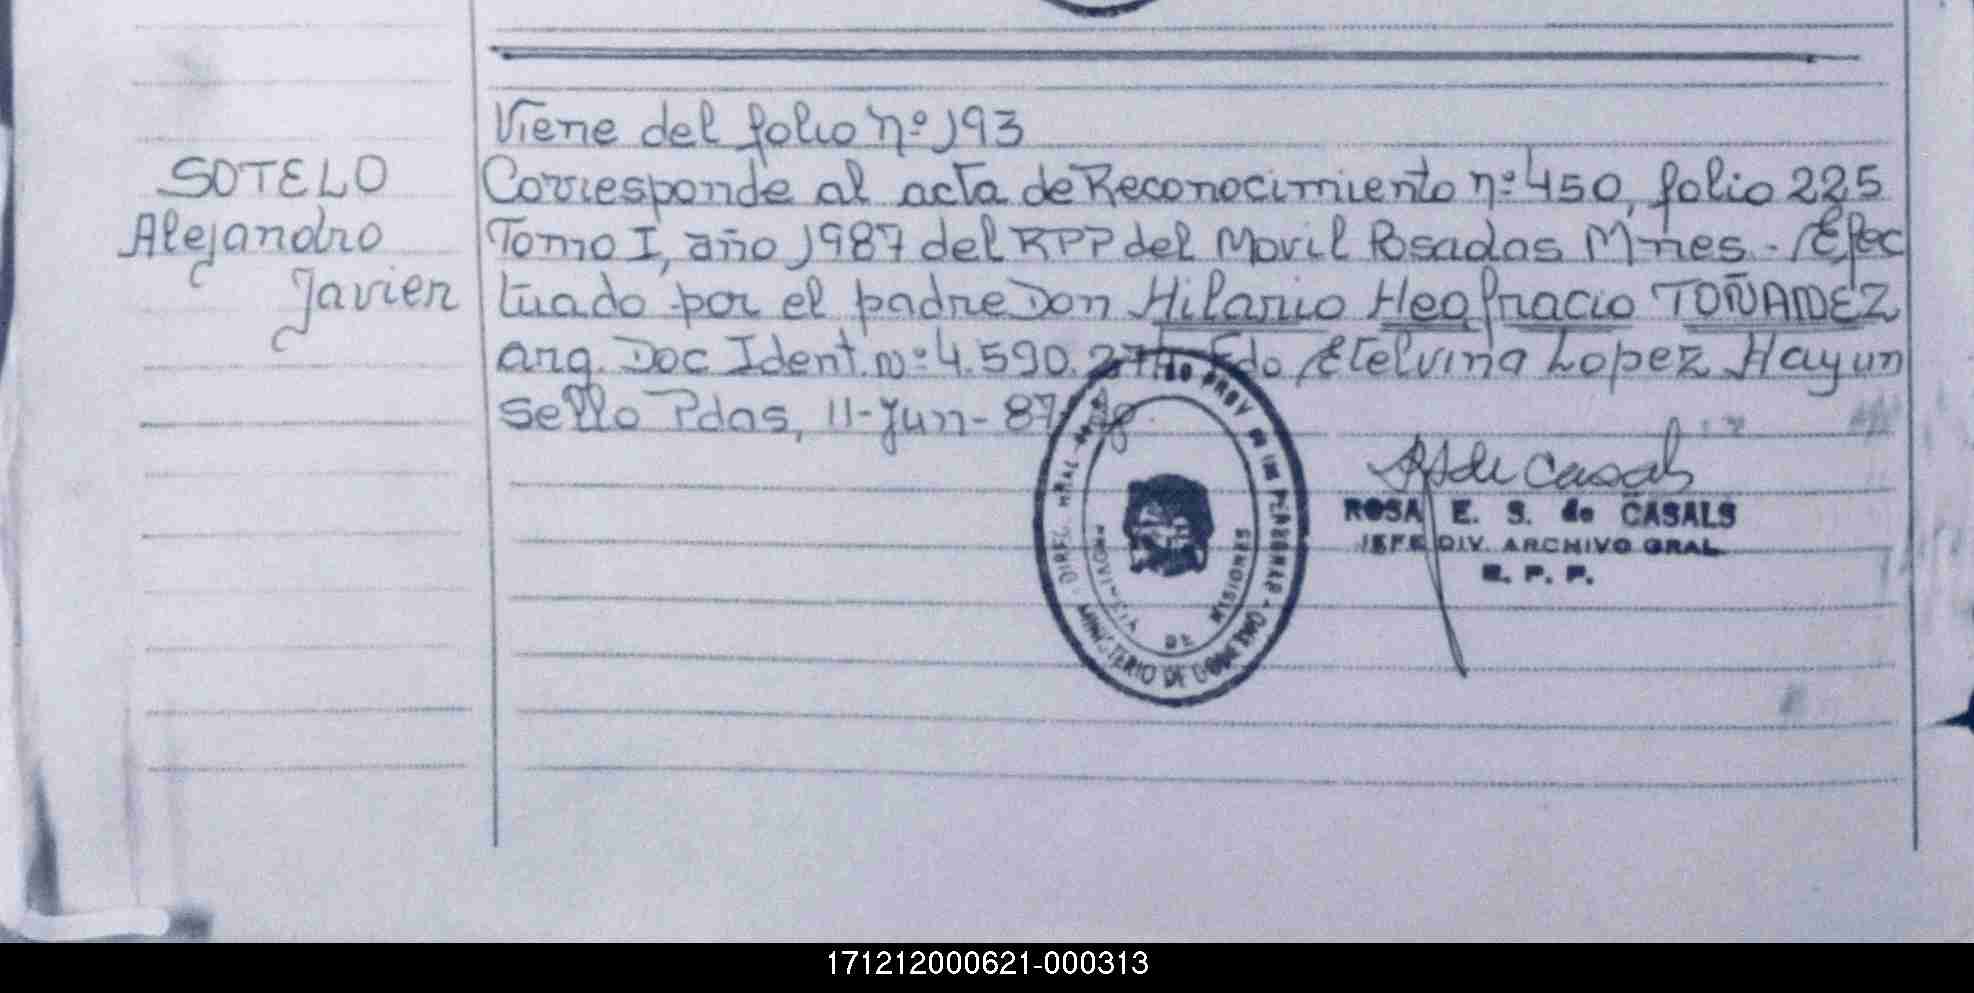 Viene del folio nº 193
SOTELO
Alejandro
Javier
Corresponde al acta de Reconocimiento nº 450, folio 225
Tomo I, año 1987 del RPP del Movil Posadas Mnes.- Efec
tuado por el padre Don Hilario Heofracio TOÑANDEZ
arg. Doc Ident. nº 4.590.274 Fdo Etelvina Lopez Hay un
sello Pdas, 11-Jun-87
ROSA E. S. de CASALS
JEFE DIV. ARCHIVO GRAL.
R. P. P.
PROV DE LAS PERSONAS
MINISTERIO DE GOBIERNO
PROVINCIA DE MISIONES
171212000621-000313